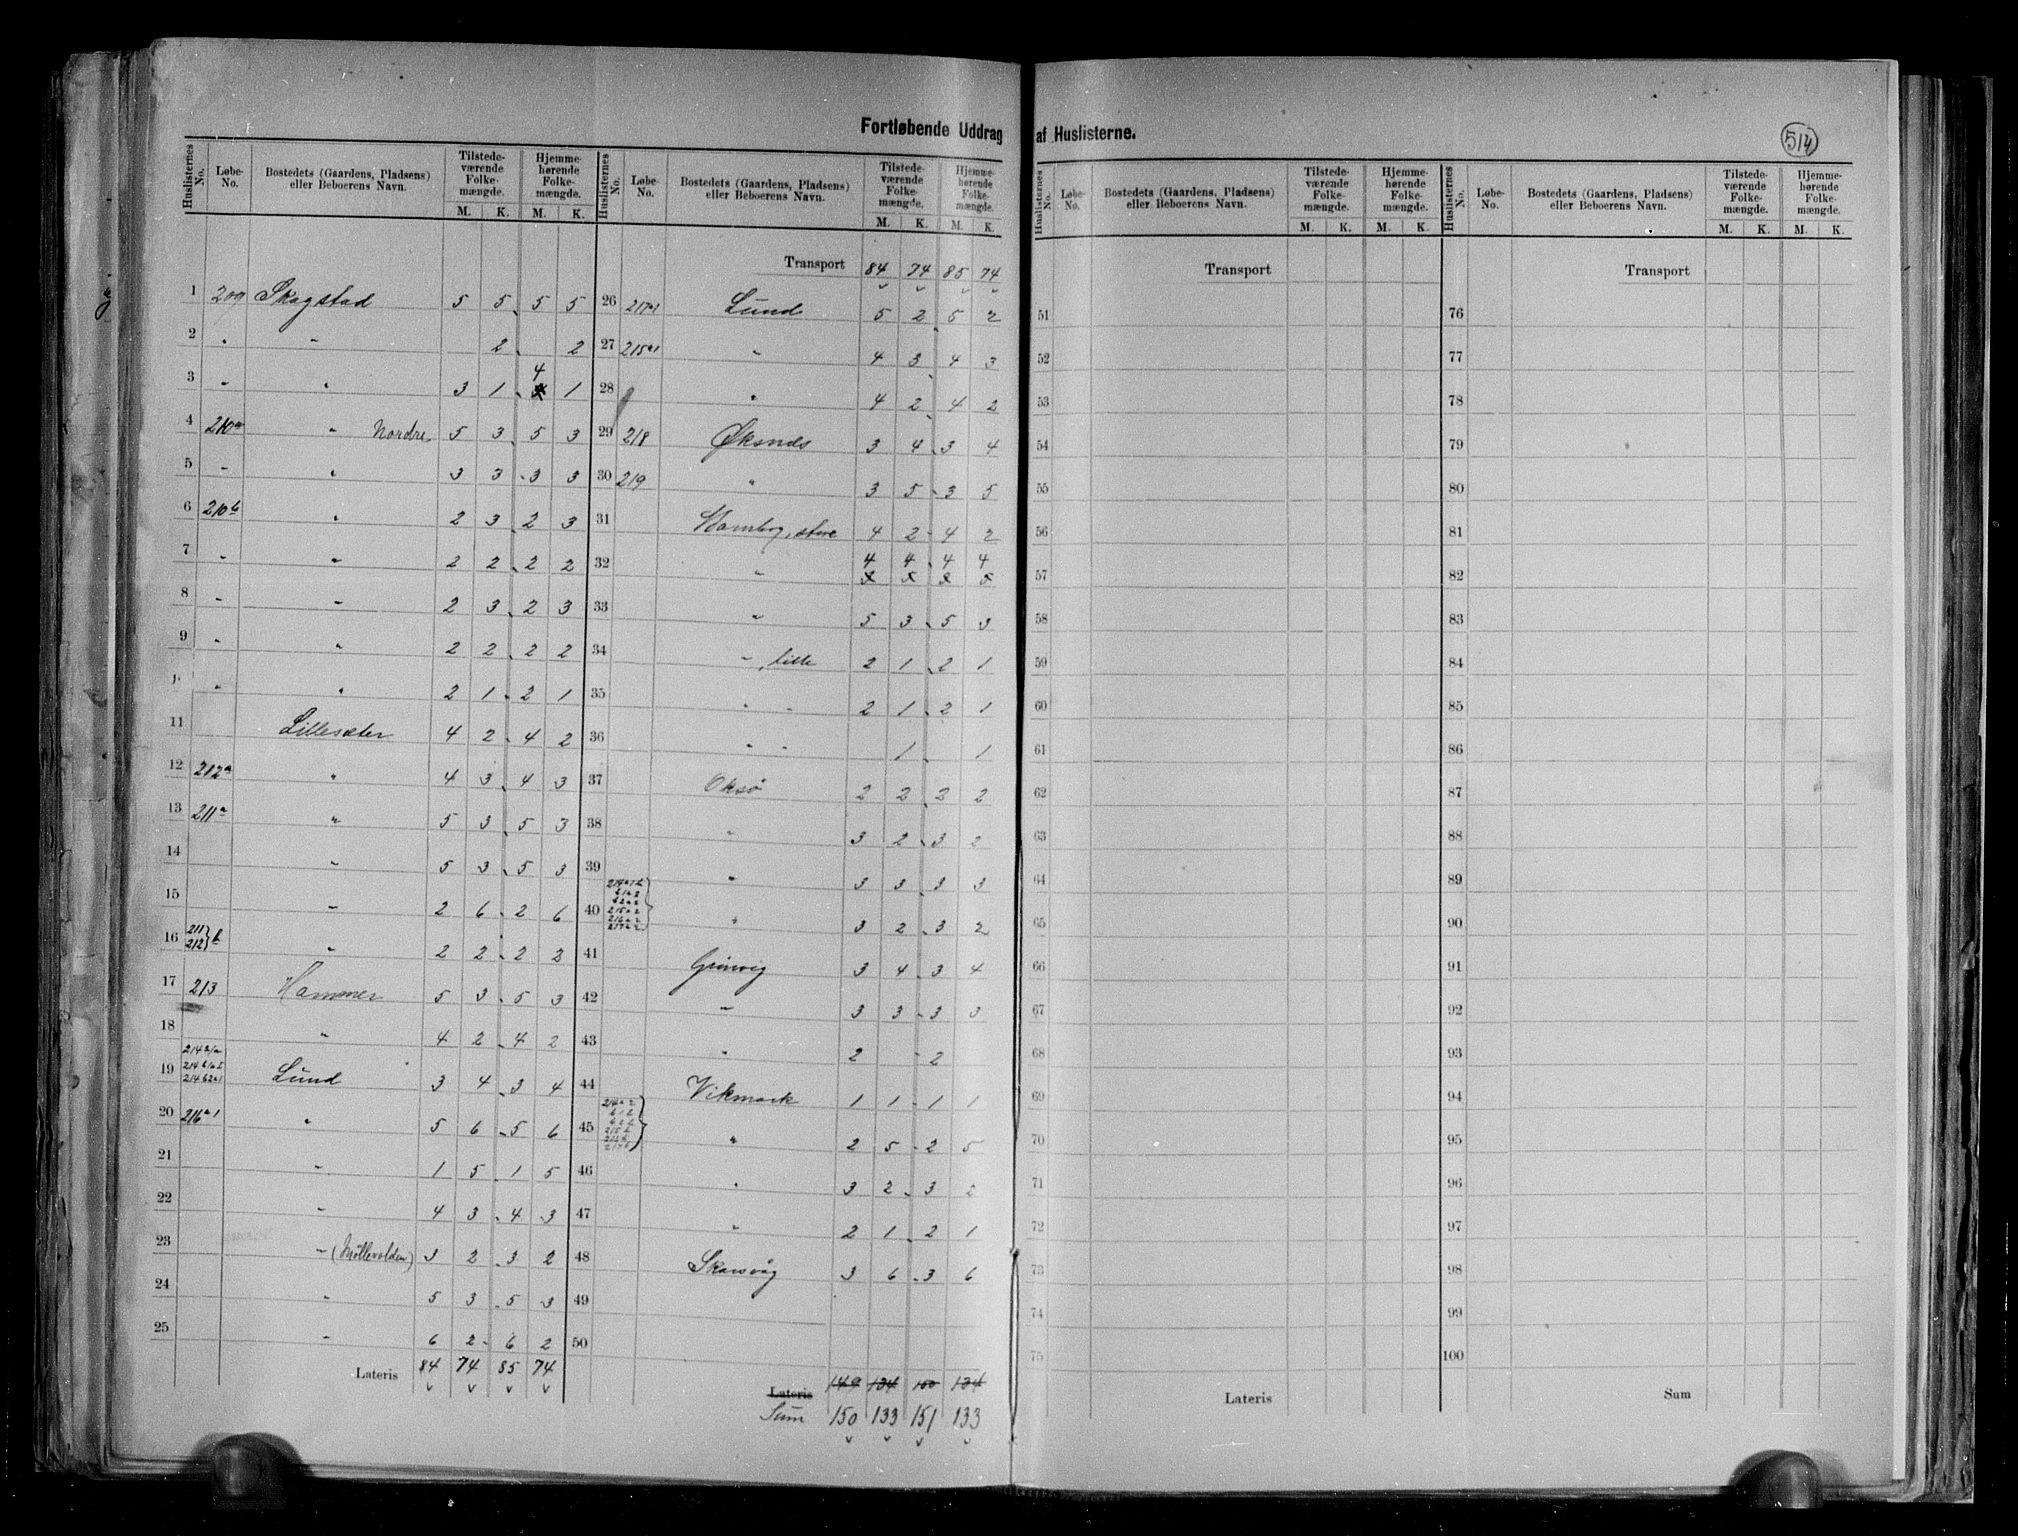 Fortløbende Uddrag af Huslisterne.
514
Huslisternes No. Løbe-No. Bostedets (Gaardens, Pladsens) eller Beboerens Navn. Tilstede-værende Folke-mængde. M. K. Hjemme-hørende Folke-mængde. M. K.
1 209 Skagstad 5 5 5 5
2 " " 2 2
3 " " 3 1 4 1
4 210a " Nordre 5 3 5 3
5 " " 3 3 3 3
6 210b " 2 3 2 3
7 " " 2 2 2 2
8 " " 2 3 2 3
9 " " 2 2 2 2
1 " " 2 1 2 1
11 Lillesæter 4 2 4 2
12 212a " 4 3 4 3
13 211a " 5 3 5 3
14 " 5 3 5 3
15 " 2 6 2 6
16 211 212 } b " 2 2 2 2
17 213 Hammer 5 3 5 3
18 " 4 2 4 2
19 Lund 3 4 3 4
20 216a1 " 5 6 5 6
21 " 1 5 1 5
22 " 4 3 4 3
23 " (Möllevolden) 3 2 3 2
24 " 5 3 5 3
25 " 6 2 6 2
Lateris 84 74 85 74
Huslisternes No. Løbe-No. Bostedets (Gaardens, Pladsens) eller Beboerens Navn. Tilstede-værende Folke-mængde. M. K. Hjemme-hørende Folke-mængde. M. K.
Transport 84 74 85 74
26 217a1 Lund 5 2 5 2
27 215a1 " 4 3 4 3
28 " 4 2 4 2
29 218 Øksnes 3 4 3 4
30 219 " 3 5 3 5
31 store 4 2 4 2
32 " 4 4 4 4
33 " 5 3 5 3
34 " , lille 2 1 2 1
35 " " 2 1 2 1
36 " " 1 1
37 Oksø 2 2 2 2
38 " 3 2 3 2
39 " 3 3 3 3
40 " 3 2 3 2
41 3 4 3 4
42 " 3 3 3 3
43 " 2 2
44 Vikmark 1 1 1 1
45 " 2 5 2 5
46 " 3 2 3 2
47 " 2 1 2 1
48 Skarsvåg 3 6 3 6
49
50
Lateris 149 134 150 134
Sum 150 133 151 133
Huslisternes No. Løbe-No. Bostedets (Gaardens, Pladsens) eller Beboerens Navn. Tilstede-værende Folke-mængde. M. K. Hjemme-hørende Folke-mængde. M. K.
Transport
51
52
53
54
55
56
57
58
59
60
61
62
63
64
65
66
67
68
69
70
71
72
73
74
75
Lateris
Huslisternes No. Løbe-No. Bostedets (Gaardens, Pladsens) eller Beboerens Navn. Tilstede-værende Folke-mængde. M. K. Hjemme-hørende Folke-mængde. M. K.
Transport
76
77
78
79
80
81
82
83
84
85
86
87
88
89
90
91
92
93
94
95
96
97
98
99
100
Sum